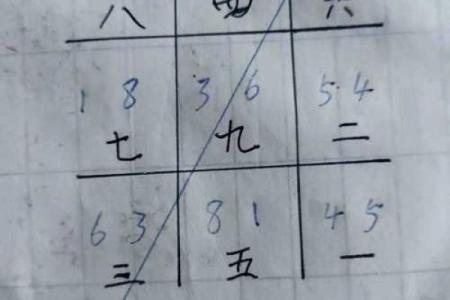 八 四 六
1 8 3 6 5 4
七 九 二
6 3 8 1 4 5
三 五 一